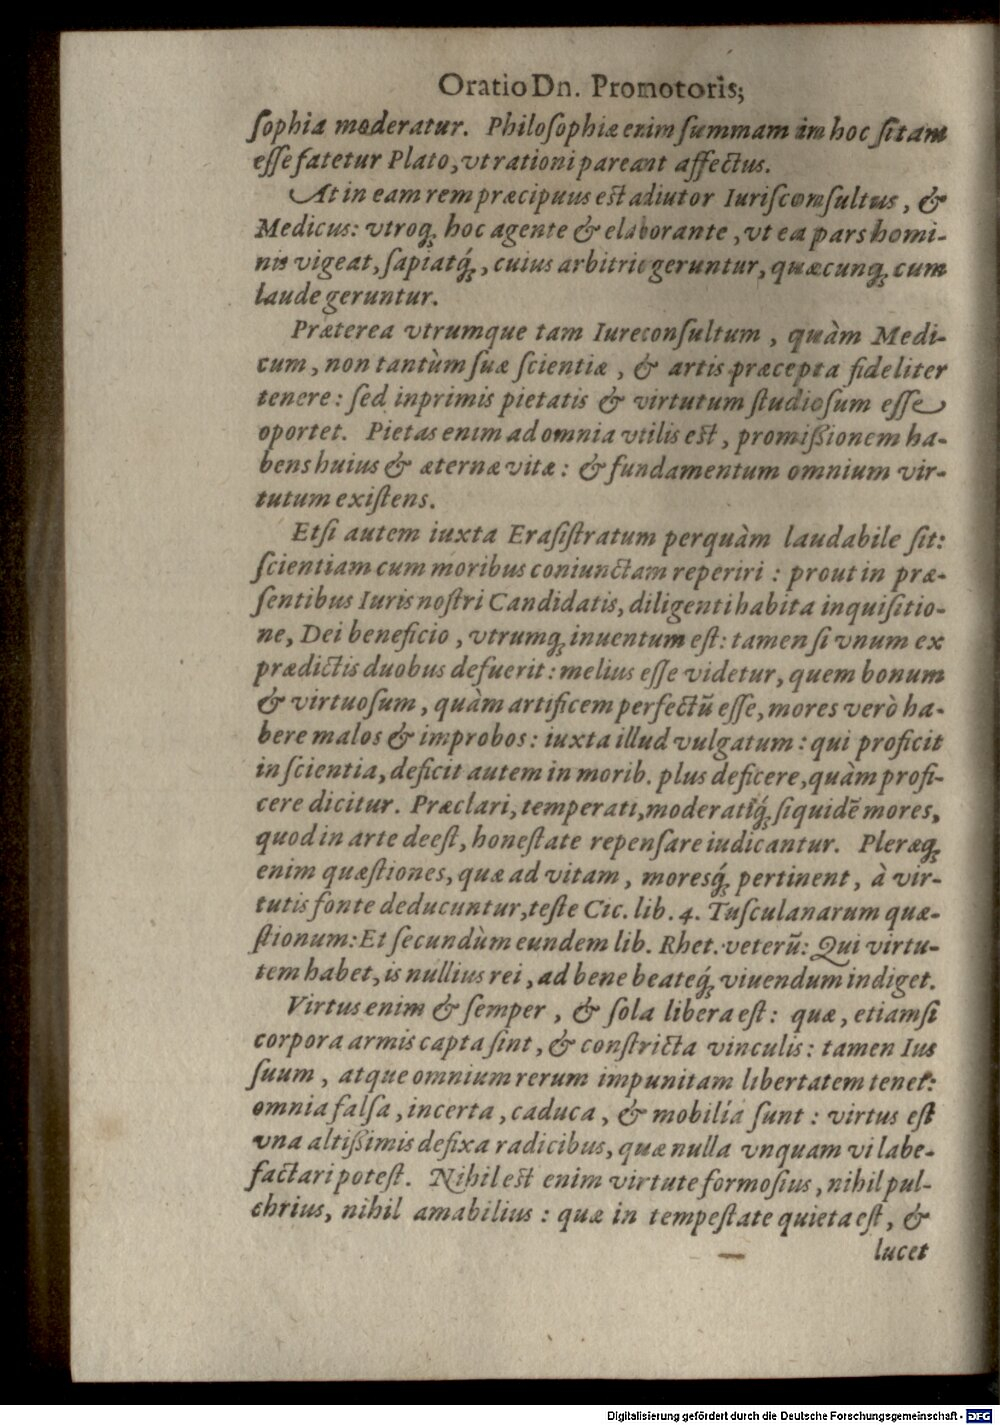 Oratio Dn. Promotoris;
ſophia moderatur. Philoſophiæ enim ſummam in hoc ſitam
eſſe fatetur Plato, vt rationi pareant affectus.
At in eam rem præcipuus est adiutor Iuriſconſultus, &
Medicus: vtroq́ꝫ hoc agente & elaborante, vt ea pars homi-
nis vigeat, ſapiatq́ꝫ, cuius arbitrio geruntur, quæcunqꝫ cum
laude geruntur.
Præterea vtrumque tam Iureconſultum, quàm Medi-
cum, non tantùm ſuæ ſcientiæ, & artis præcepta fideliter
tenere: ſed inprimis pietatis & virtutum ſtudioſum eſſe
oportet. Pietas enim ad omnia vtilis est, promiſsionem ha-
bens huius & æternæ vitæ: & fundamentum omnium vir-
tutum exiſtens.
Etſi autem iuxta Eraſiſtratum perquàm laudabile ſit:
ſcientiam cum moribus coniunctam reperiri: prout in præ-
ſentibus Iuris noſtri Candidatis, diligenti habita inquiſitio-
ne, Dei beneficio, vtrumqꝫ inuentum eſt: tamen ſi vnum ex
prædictis duobus defuerit: melius eſſe videtur, quem bonum
& virtuoſum, quàm artificem perfectũ eſſe, mores verò ha-
bere malos & improbos: iuxta illud vulgatum: qui proficit
in ſcientia, deficit autem in morib. plus deficere, quàm profi-
cere dicitur. Præclari, temperati, moderatiq́ꝫ ſiquidẽ mores,
quod in arte deeſt, honeſtate repenſare iudicantur. Pleræqꝫ
enim quæſtiones, quæ ad vitam, moresq́ꝫ pertinent, à vir-
tutis fonte deducuntur, teſte Cic. lib. 4. Tuſculanarum quæ-
ſtionum: Et ſecundùm eundem lib. Rhet. veterũ: Qui virtu-
tem habet, is nullius rei, ad bene beateq́ꝫ viuendum indiget.
Virtus enim & ſemper, & ſola libera eſt: quæ, etiamſi
corpora armis capta ſint, & conſtricta vinculis: tamen Ius
ſuum, atque omnium rerum impunitam libertatem tenet:
omnia falſa, incerta, caduca, & mobilia ſunt: virtus eſt
vna altiſsimis defixa radicibus, quæ nulla vnquam vi labe-
factari poteſt. Nihil est enim virtute formoſius, nihil pul-
chrius, nihil amabilius: quæ in tempeſtate quieta eſt, &
lucet
Digitalisierung gefördert durch die Deutsche Forschungsgemeinschaft - DFG